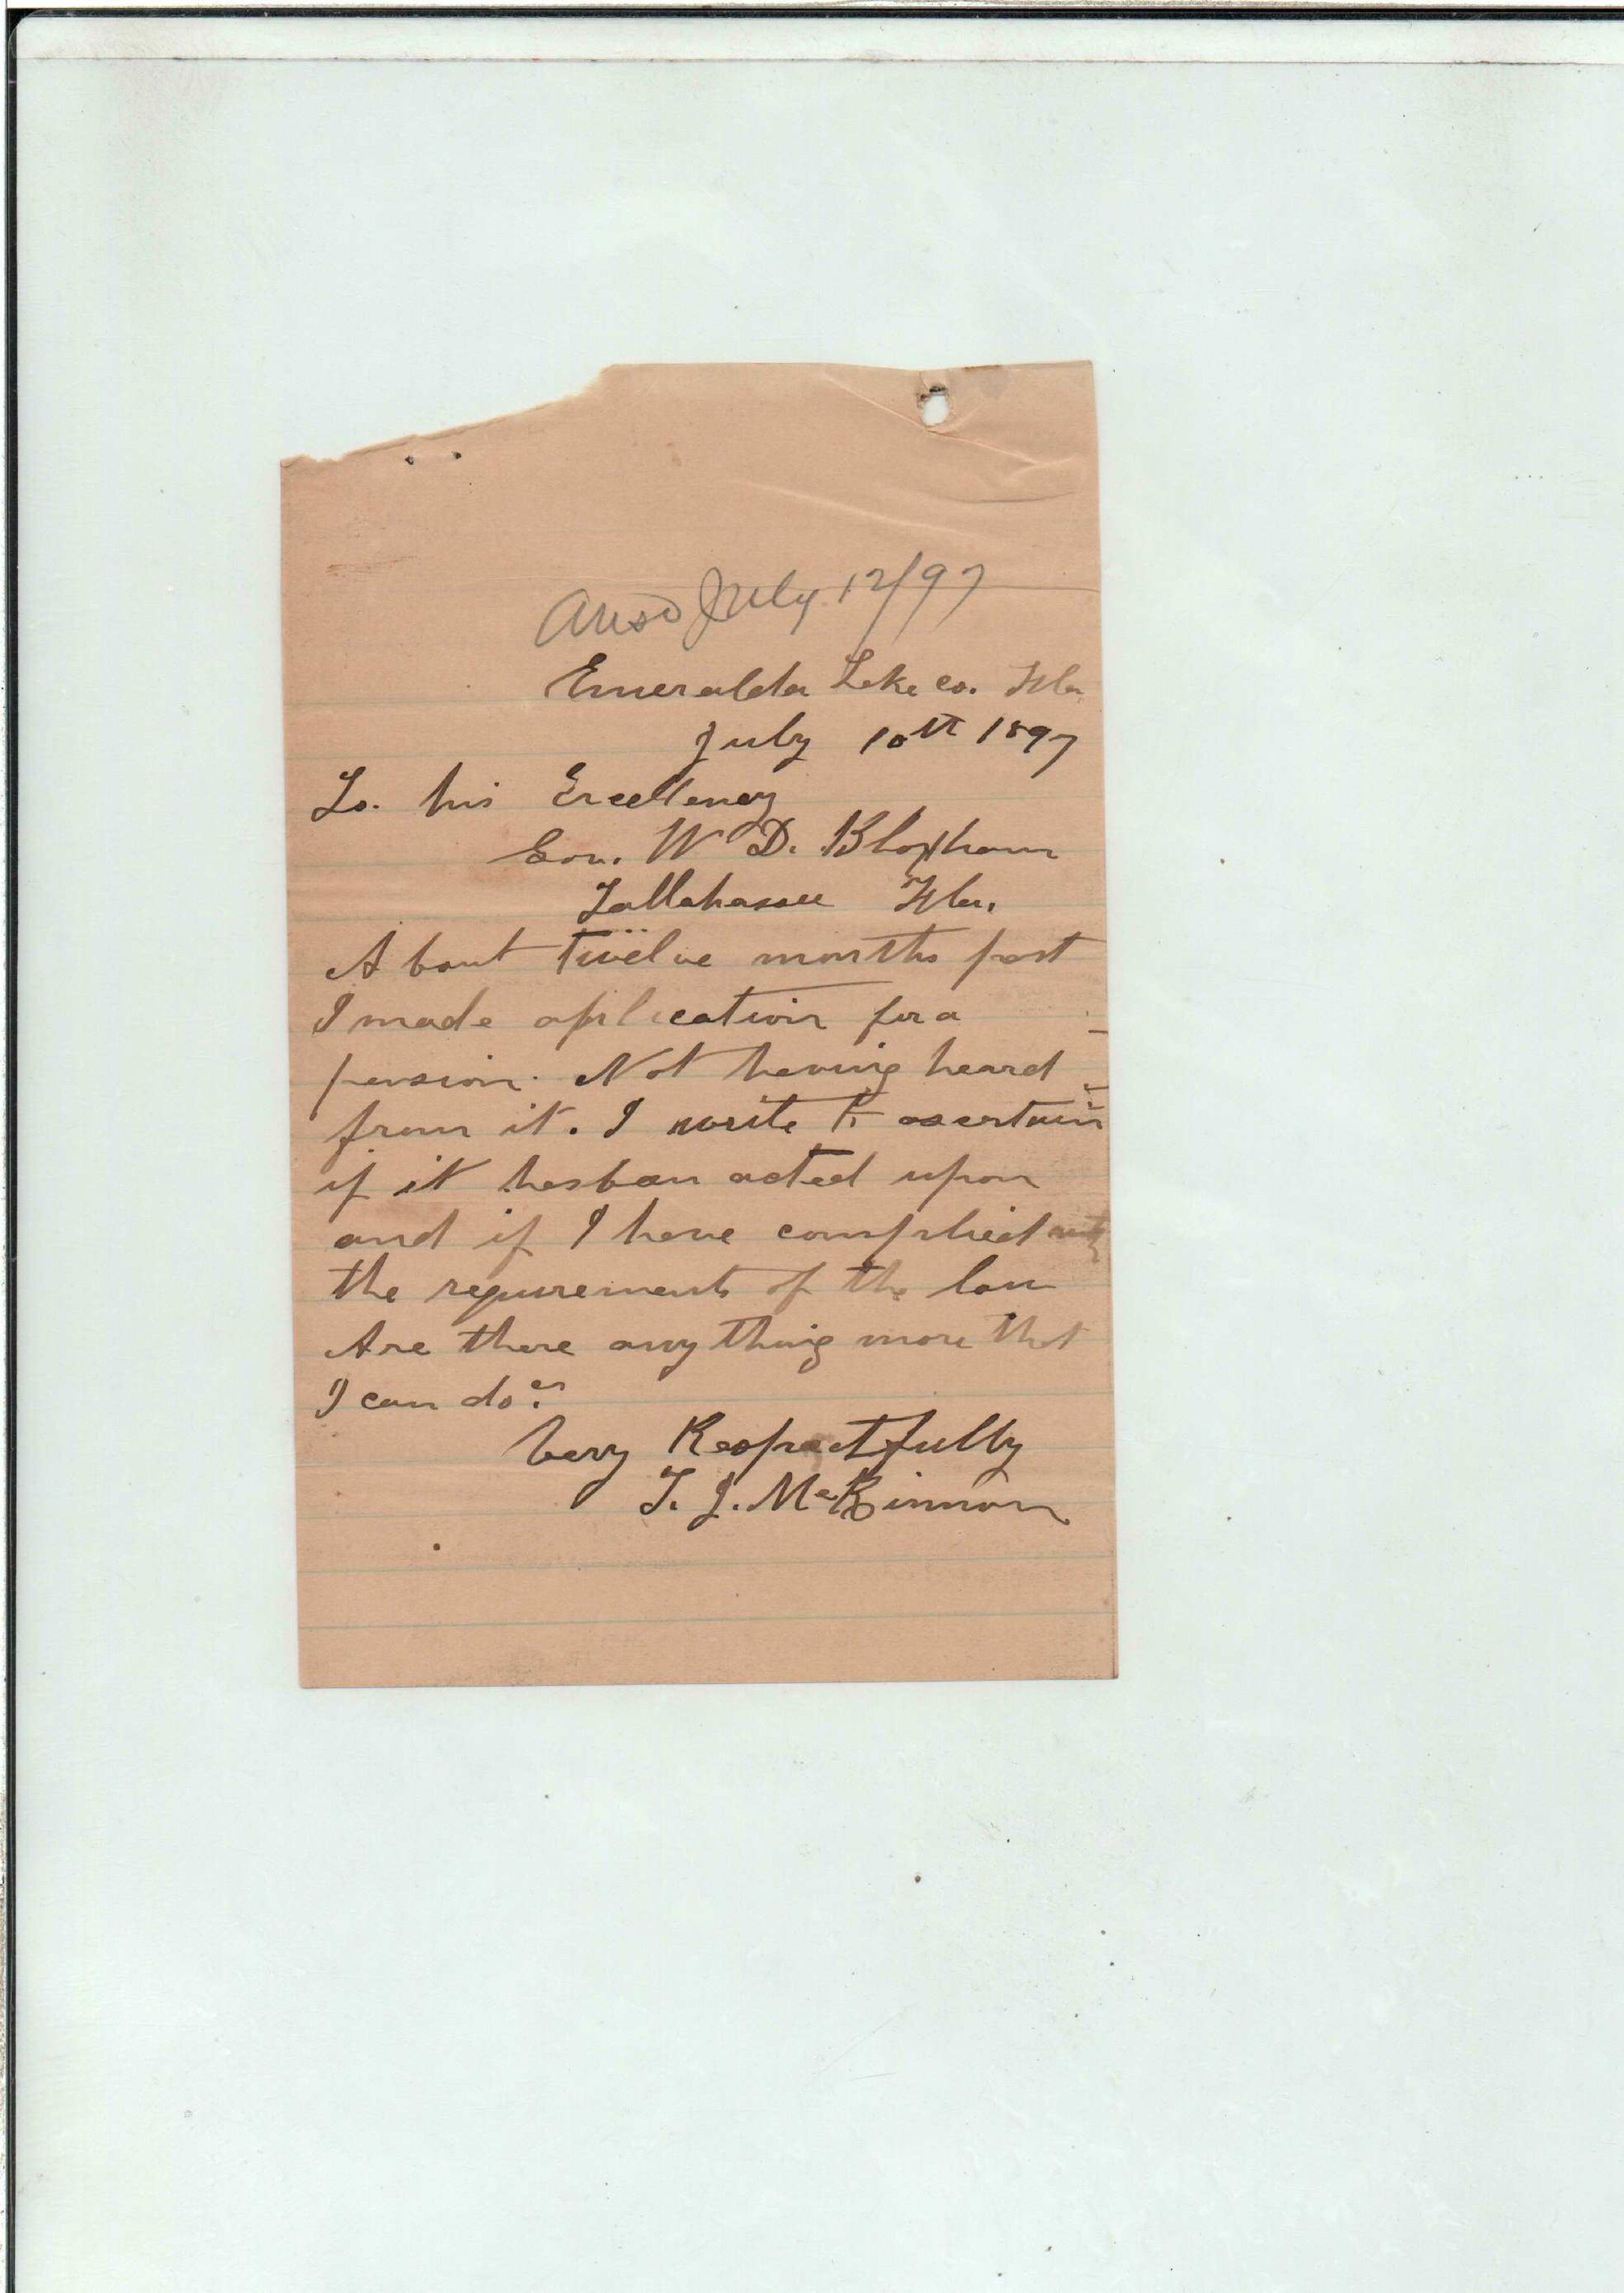 Ansd July 12/97
Emeralda Lake co. Fla
July 10th 1897
To. his Excellency
Gov. W D. Bloxham
Tallahassee Fla.
About twelve months past
I made aplication for a
pension. Not having heard
from it. I write to ascertain
if it has ben acted upon
and if I have complied with
the requirements of the law
Are there any thing more that
I can do?
Very Respectfully
T. J. McKinnon